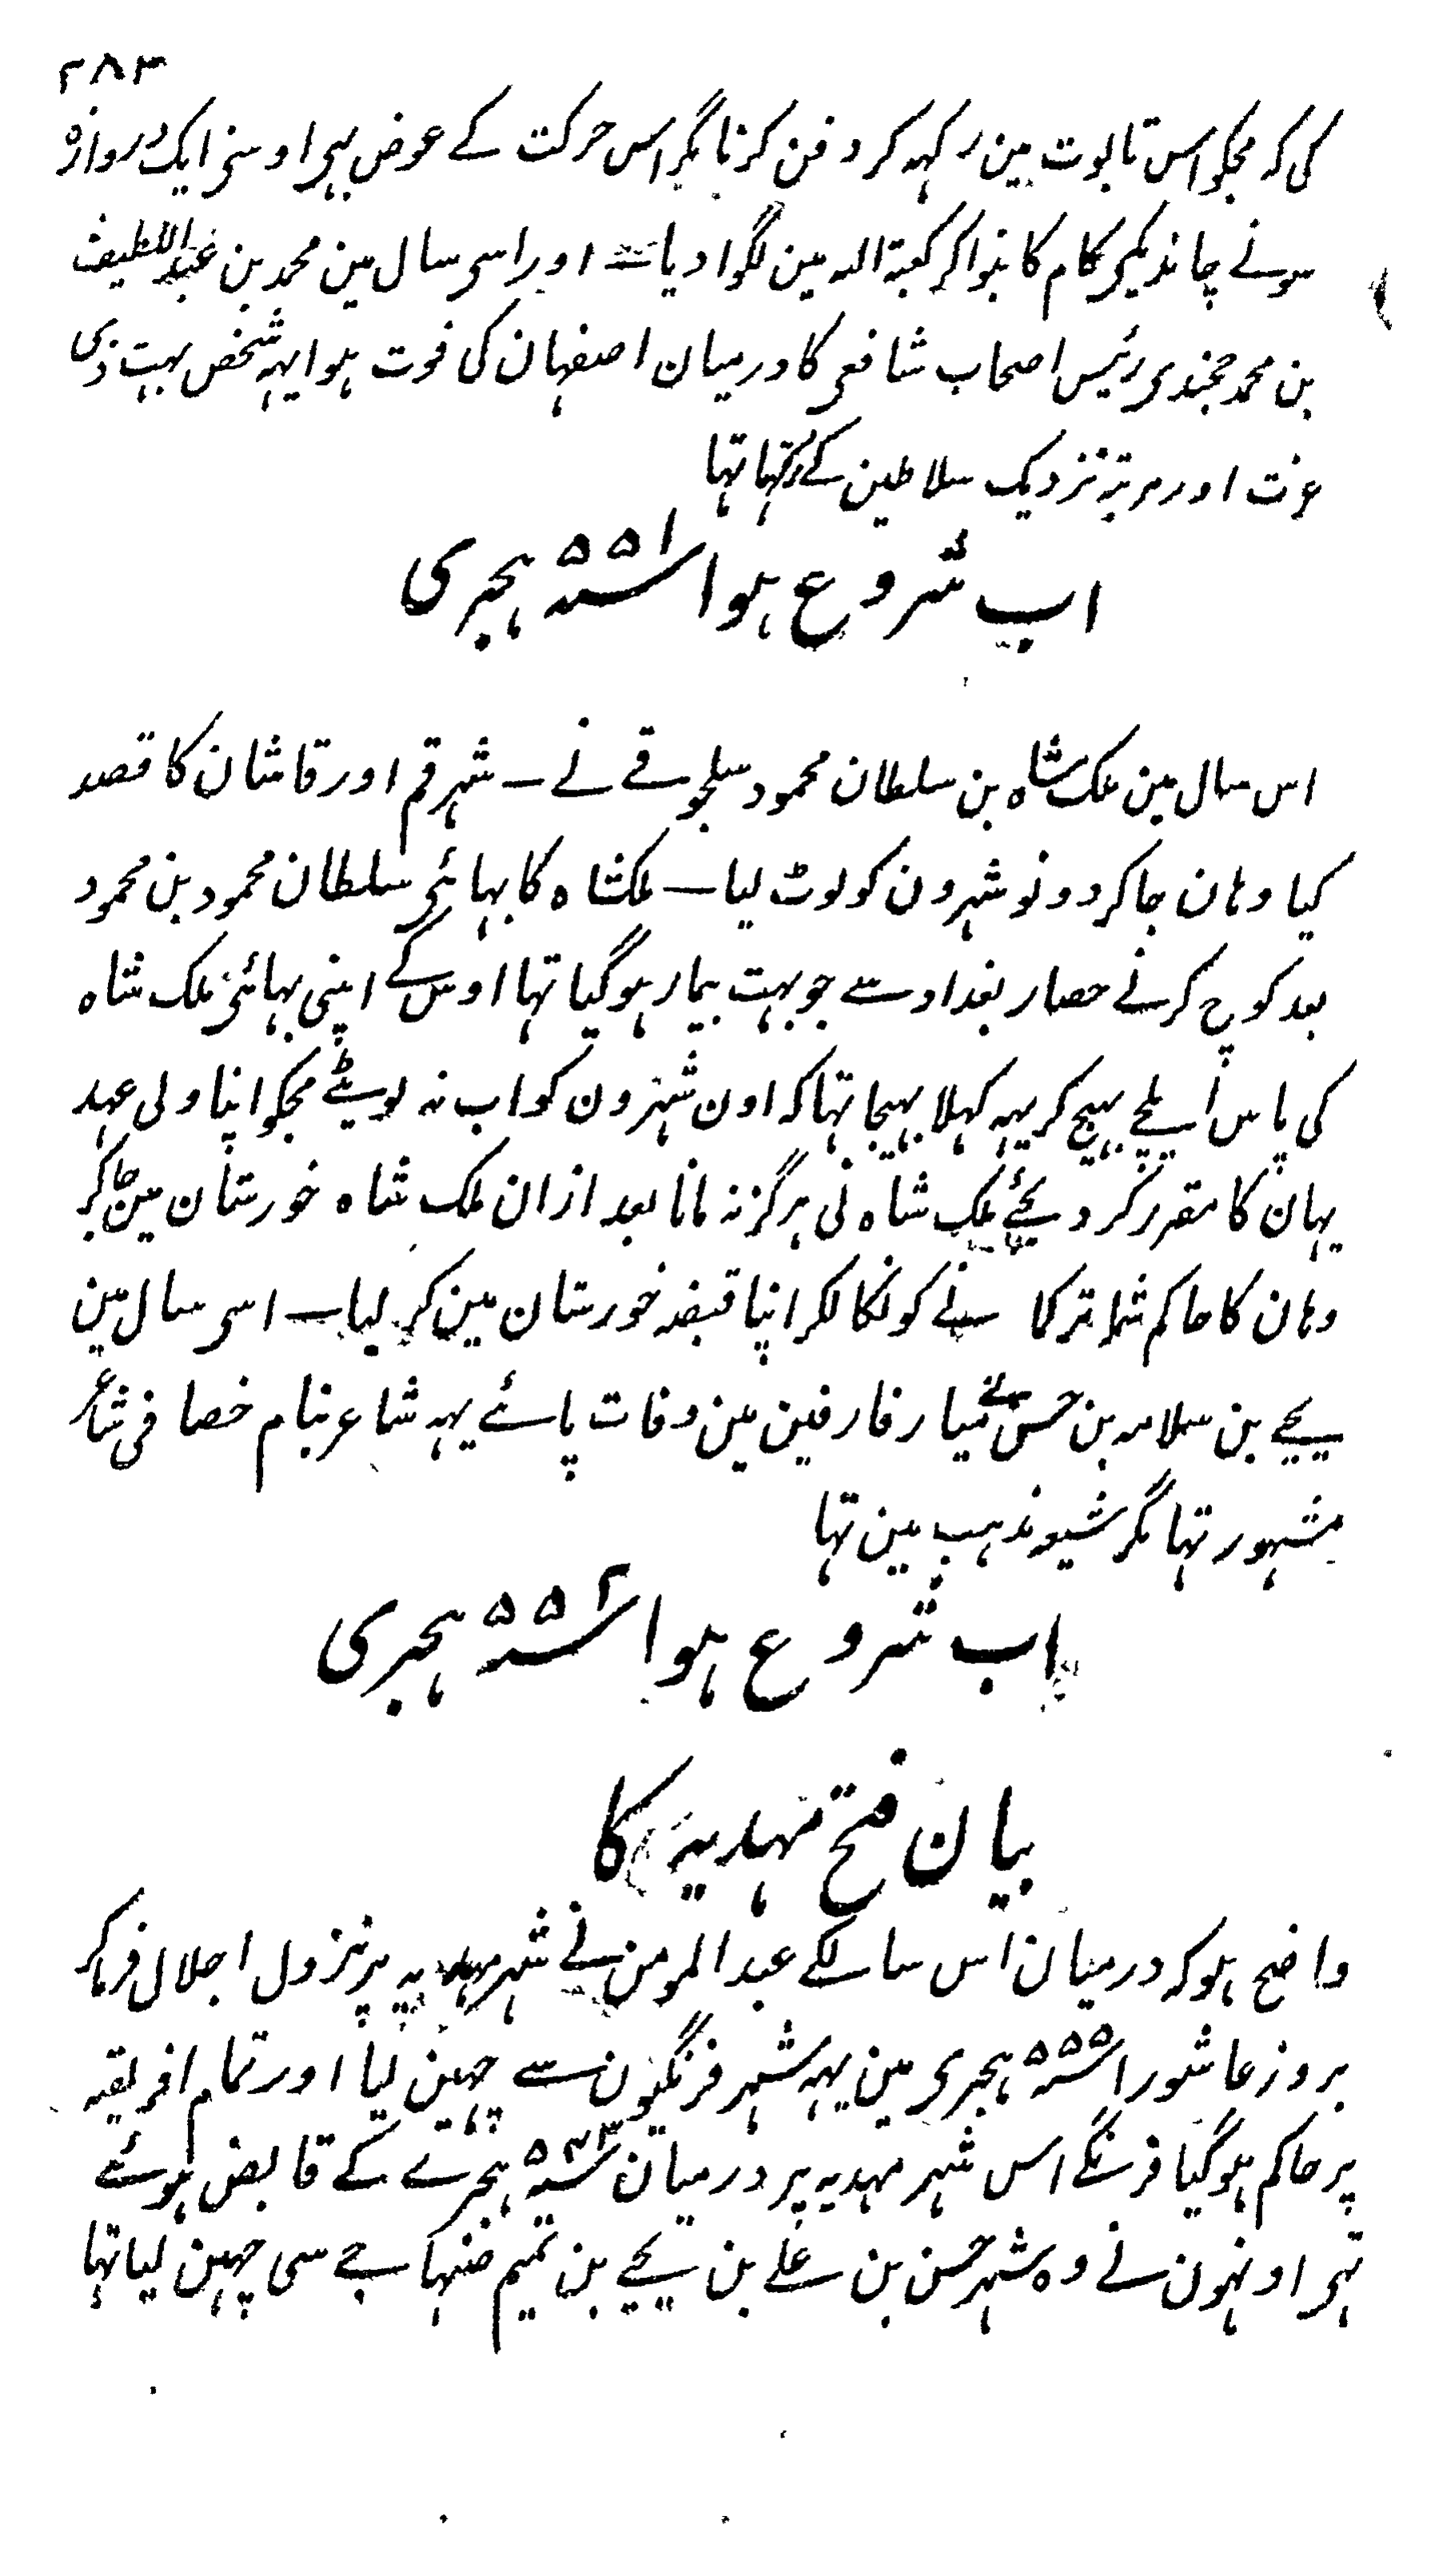 ۲۸۳
کی کہ مجکو اس تابوت مین رکہہ کر دفن کرنا مگر اس حرکت کے عوض پہر اوسنے ایک دروازہ
سونے چاندیکی کام کا بنوا کر کعبۃ اللہ مین لگوا دیا ـ اور اسی سال مین محمد بن عبد اللطیف
بن محمد خجندی رئیس اصحاب شافعی کا درمیان اصفہان کی فوت ہوا یہہ شخص بہت ذی
عزت اور مرتبہ نزدیک سلاطین کے رکہتا تہا
اب شروع ہوا سنہ ۵۵۱ ہجری
اس سال مین ملک شاہ بن سلطان محمود سلجوقے نے ـ شہر قم اور قاشان کا قصد
کیا وہان جا کر دونو شہرون کو لوٹ لیا ـ ملکشاہ کا بہائی سلطان محمود بن محمود
بعد کوچ کرنے حصار بغداد سے جو بہت بیمار ہو گیا تہا اوس کے اپنی بہائی ملک شاہ
کی پاس ایلچے بہیج کر یہہ کہلا بہیجا تہا کہ اون شہرون کو اب نہ لوٹیے مجکو اپنا ولی عہد
یہان کا مقرر کر دیجئے ملک شاہ نی ہرگز نہ مانا بعد ازان ملک شاہ خورستان مین جا کر
وہان کا حاکم شملہ ترکما نے کو نکالکر اپنا قبضہ خورستان مین کر لیا ـ اسی سال مین
یحیے بن سلامہ بن حسن نے میارفارقین مین وفات پائے یہہ شاعر بنام خصافی شاعر
مشہور تہا مگر شیعہ مذہب مین تہا
اب شروع ہوا سنہ ۵۵۲ ہجری
بیان فتح مہدیہ کا
واضح ہو کہ درمیان اس سالکے عبد المومن نے شہر مہدیہ پر نزول اجلال فرما کر
بروز عاشورا سنہ ۵۵۵ ہجری مین یہہ شہر فرنگیون سے چہین لیا اور تمام افریقہ
پر حاکم ہو گیا فرنگے اس شہر مہدیہ پر درمیان سنہ ۵۴۳ ہجرے کے قابض ہوئے
تہی اونہون نے وہ شہر حسن بن علے بن یحیے بن تمیم صنہاجے سی چہین لیا تہا